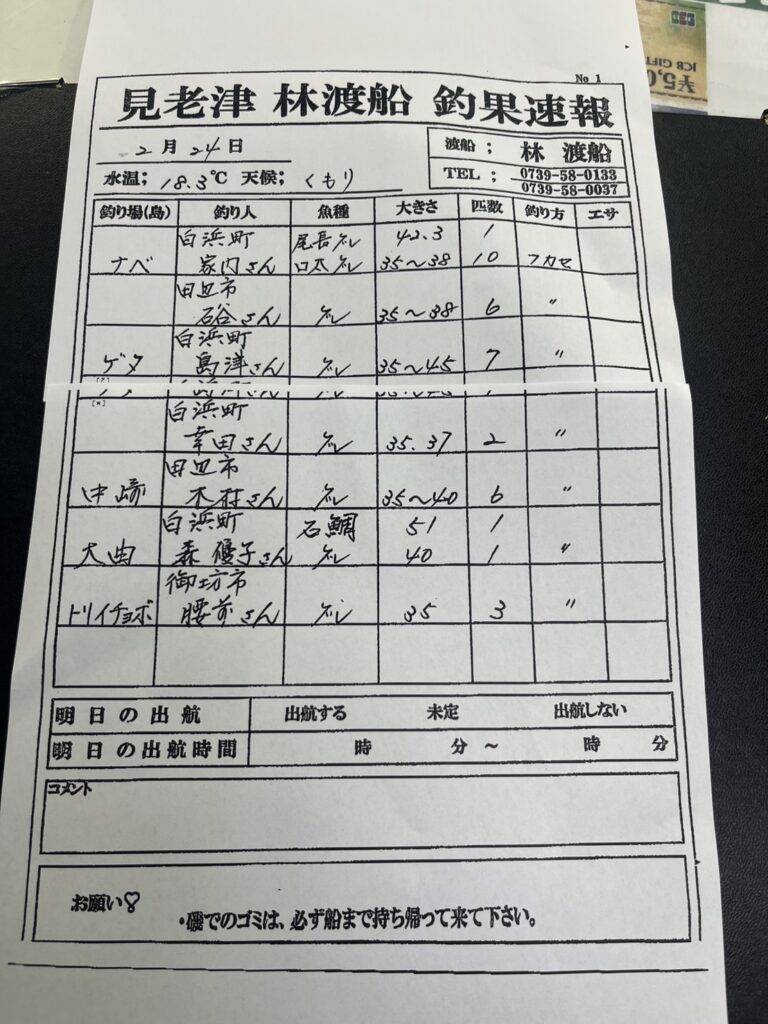 JCB
¥5,0
JCB GIFT
No 1
見老津 林渡船 釣果速報
2月24日
渡船； 林 渡船
水温；18.3℃ 天候；くもり
TEL； 0739-58-0133
0739-58-0037
釣り場(島) 釣り人 魚種 大きさ 匹数 釣り方 エサ
白浜町 尾長グレ 42.3 1
ナベ 家内さん 口太グレ 35～38 10 フカセ
田辺市
石谷さん グレ 35～38 6 〃
白浜町
ゲタ 島津さん グレ 35～45 7 〃
白浜町
幸田さん グレ 35.37 2 〃
田辺市
中崎 木村さん グレ 35～40 6 〃
白浜町 石鯛 51 1
大曲 森 優子さん グレ 40 1 〃
御坊市
トリイチョボ 腰前さん グレ 35 3 〃
明日の出航 出航する 未定 出航しない
明日の出航時間 時 分 ～ 時 分
コメント
お願い♡
・磯でのゴミは、必ず船まで持ち帰って来て下さい。